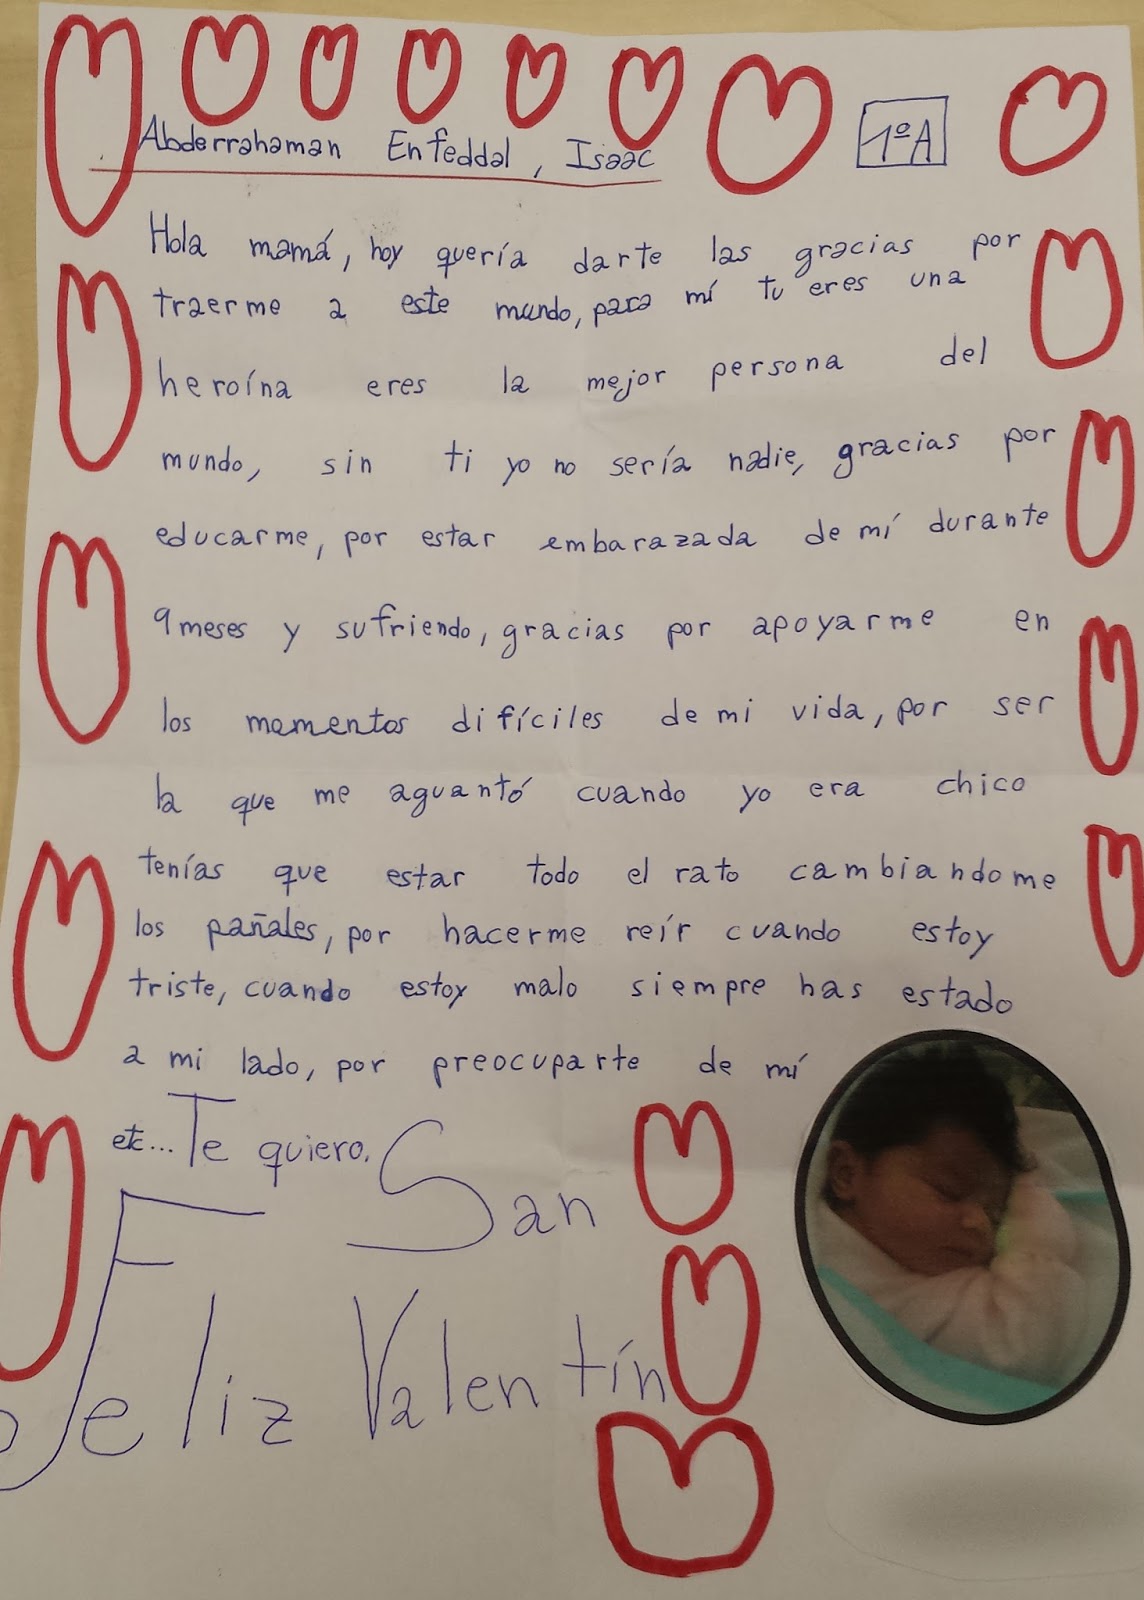 Abderrahaman Enfeddal, Isaac
1ºA
Hola mamá, hoy quería darte las gracias por
traerme a este mundo, para mí tu eres una
heroína eres la mejor persona del
mundo, sin ti yo no sería nadie, gracias por
educarme, por estar embarazada de mí durante
9 meses y sufriendo, gracias por apoyarme en
los momentos difíciles de mi vida, por ser
la que me aguantó cuando yo era chico
tenías que estar todo el rato cambiandome
los pañales, por hacerme reír cuando estoy
triste, cuando estoy malo siempre has estado
a mi lado, por preocuparte de mí
etc... Te quiero.
Feliz San
Valentín